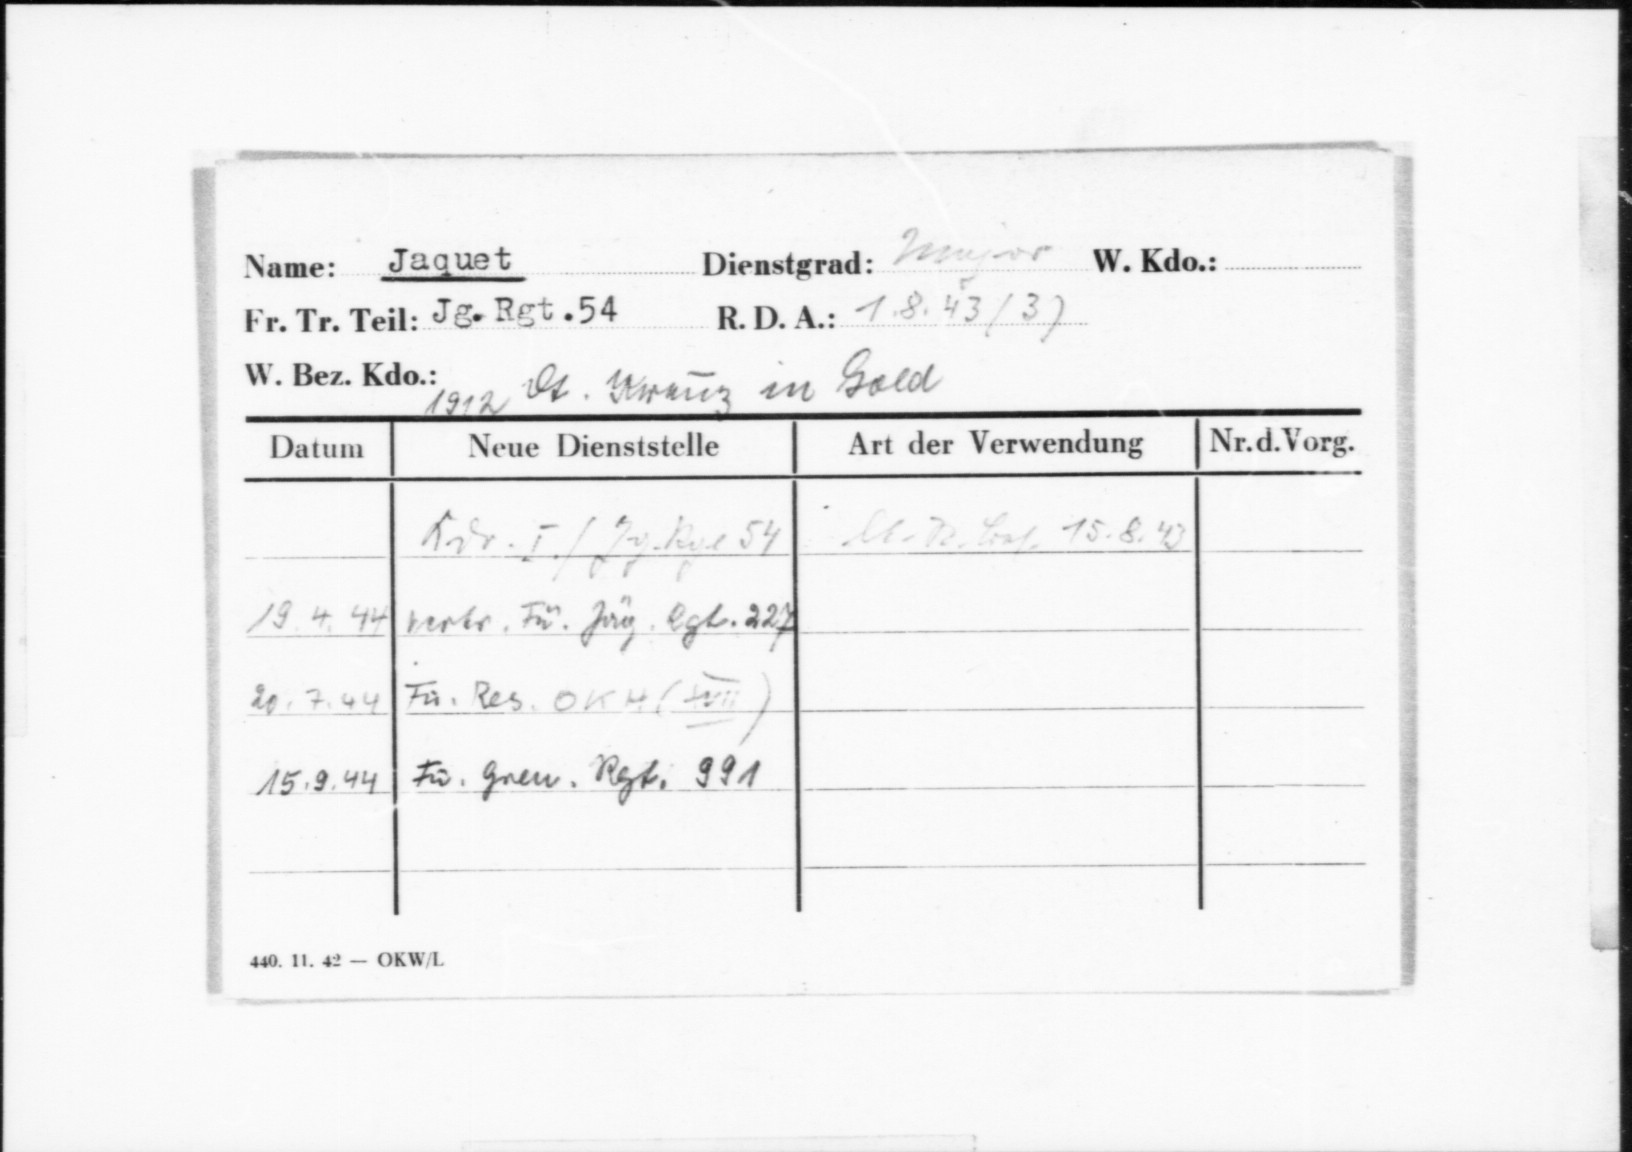 Name: Jaquet Dienstgrad: Major W. Kdo.:
Fr. Tr. Teil: Jg. Rgt. 54 R. D. A.: 1.8.43 (3)
W. Bez. Kdo.: 1912 Dt. Kreuz in Gold
Datum Neue Dienststelle Art der Verwendung Nr. d. Vorg.
Kdr. I./Jg. Rgt 54 15.8.43
19.4.44 vertr. Fü. Jäg. Rgt. 227
20.7.44 Fü. Res. OKH (XVII)
15.9.44 Fü. Gren. Rgt. 991
440. 11. 42 — OKW/L